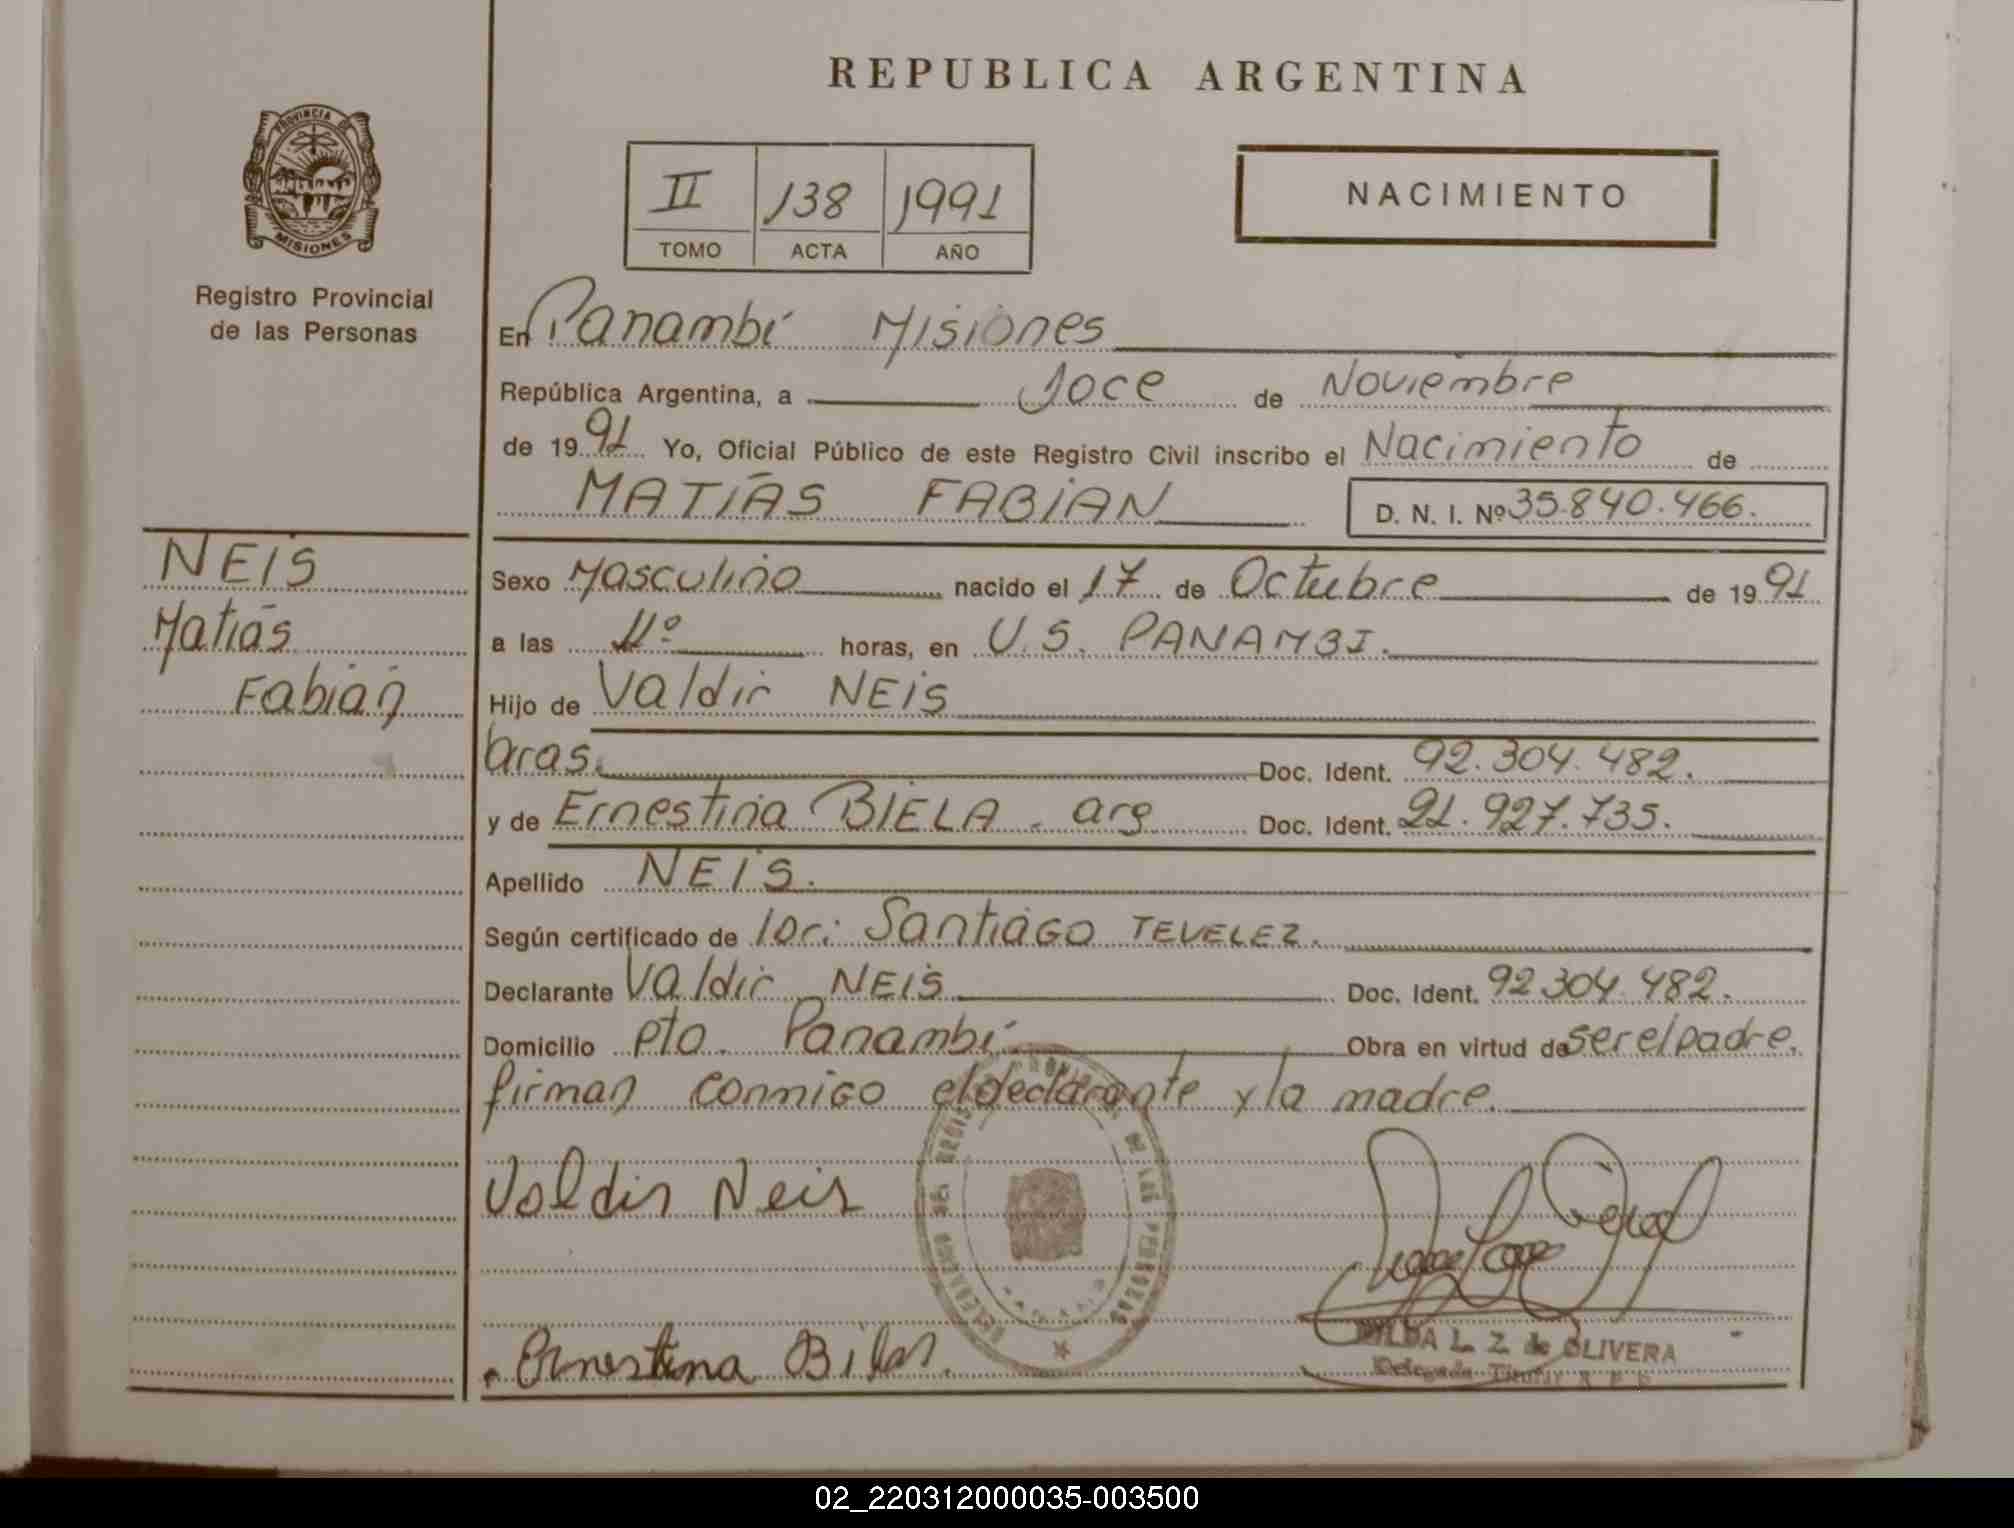 REPUBLICA ARGENTINA
PROVINCIA DE
MISIONES
Registro Provincial
de las Personas
II 138 1991
TOMO ACTA AÑO
NACIMIENTO
En Panambí Misiones
República Argentina, a doce de Noviembre
de 1991 Yo, Oficial Público de este Registro Civil inscribo el Nacimiento de
MATÍAS FABIAN D. N. I. Nº 35.840.466.
NEIS
Matías
Fabián
Sexo Masculino nacido el 17 de Octubre de 1991
a las 11º horas, en U.S. PANAMBI.
Hijo de Valdir NEIS
bras. Doc. Ident. 92.304.482.
y de Ernestina BIELA. arg Doc. Ident. 21.927.735.
Apellido NEIS.
Según certificado de Santiago TEVELEZ.
Declarante Valdir NEIS Doc. Ident. 92.304.482.
Domicilio pto. Panambí Obra en virtud de ser el padre.
firman conmigo el declarante y la madre.
Valdir Neis
Ernestina
DE LAS PERSONAS
L. Z. de OLIVERA
Titular
02_220312000035-003500